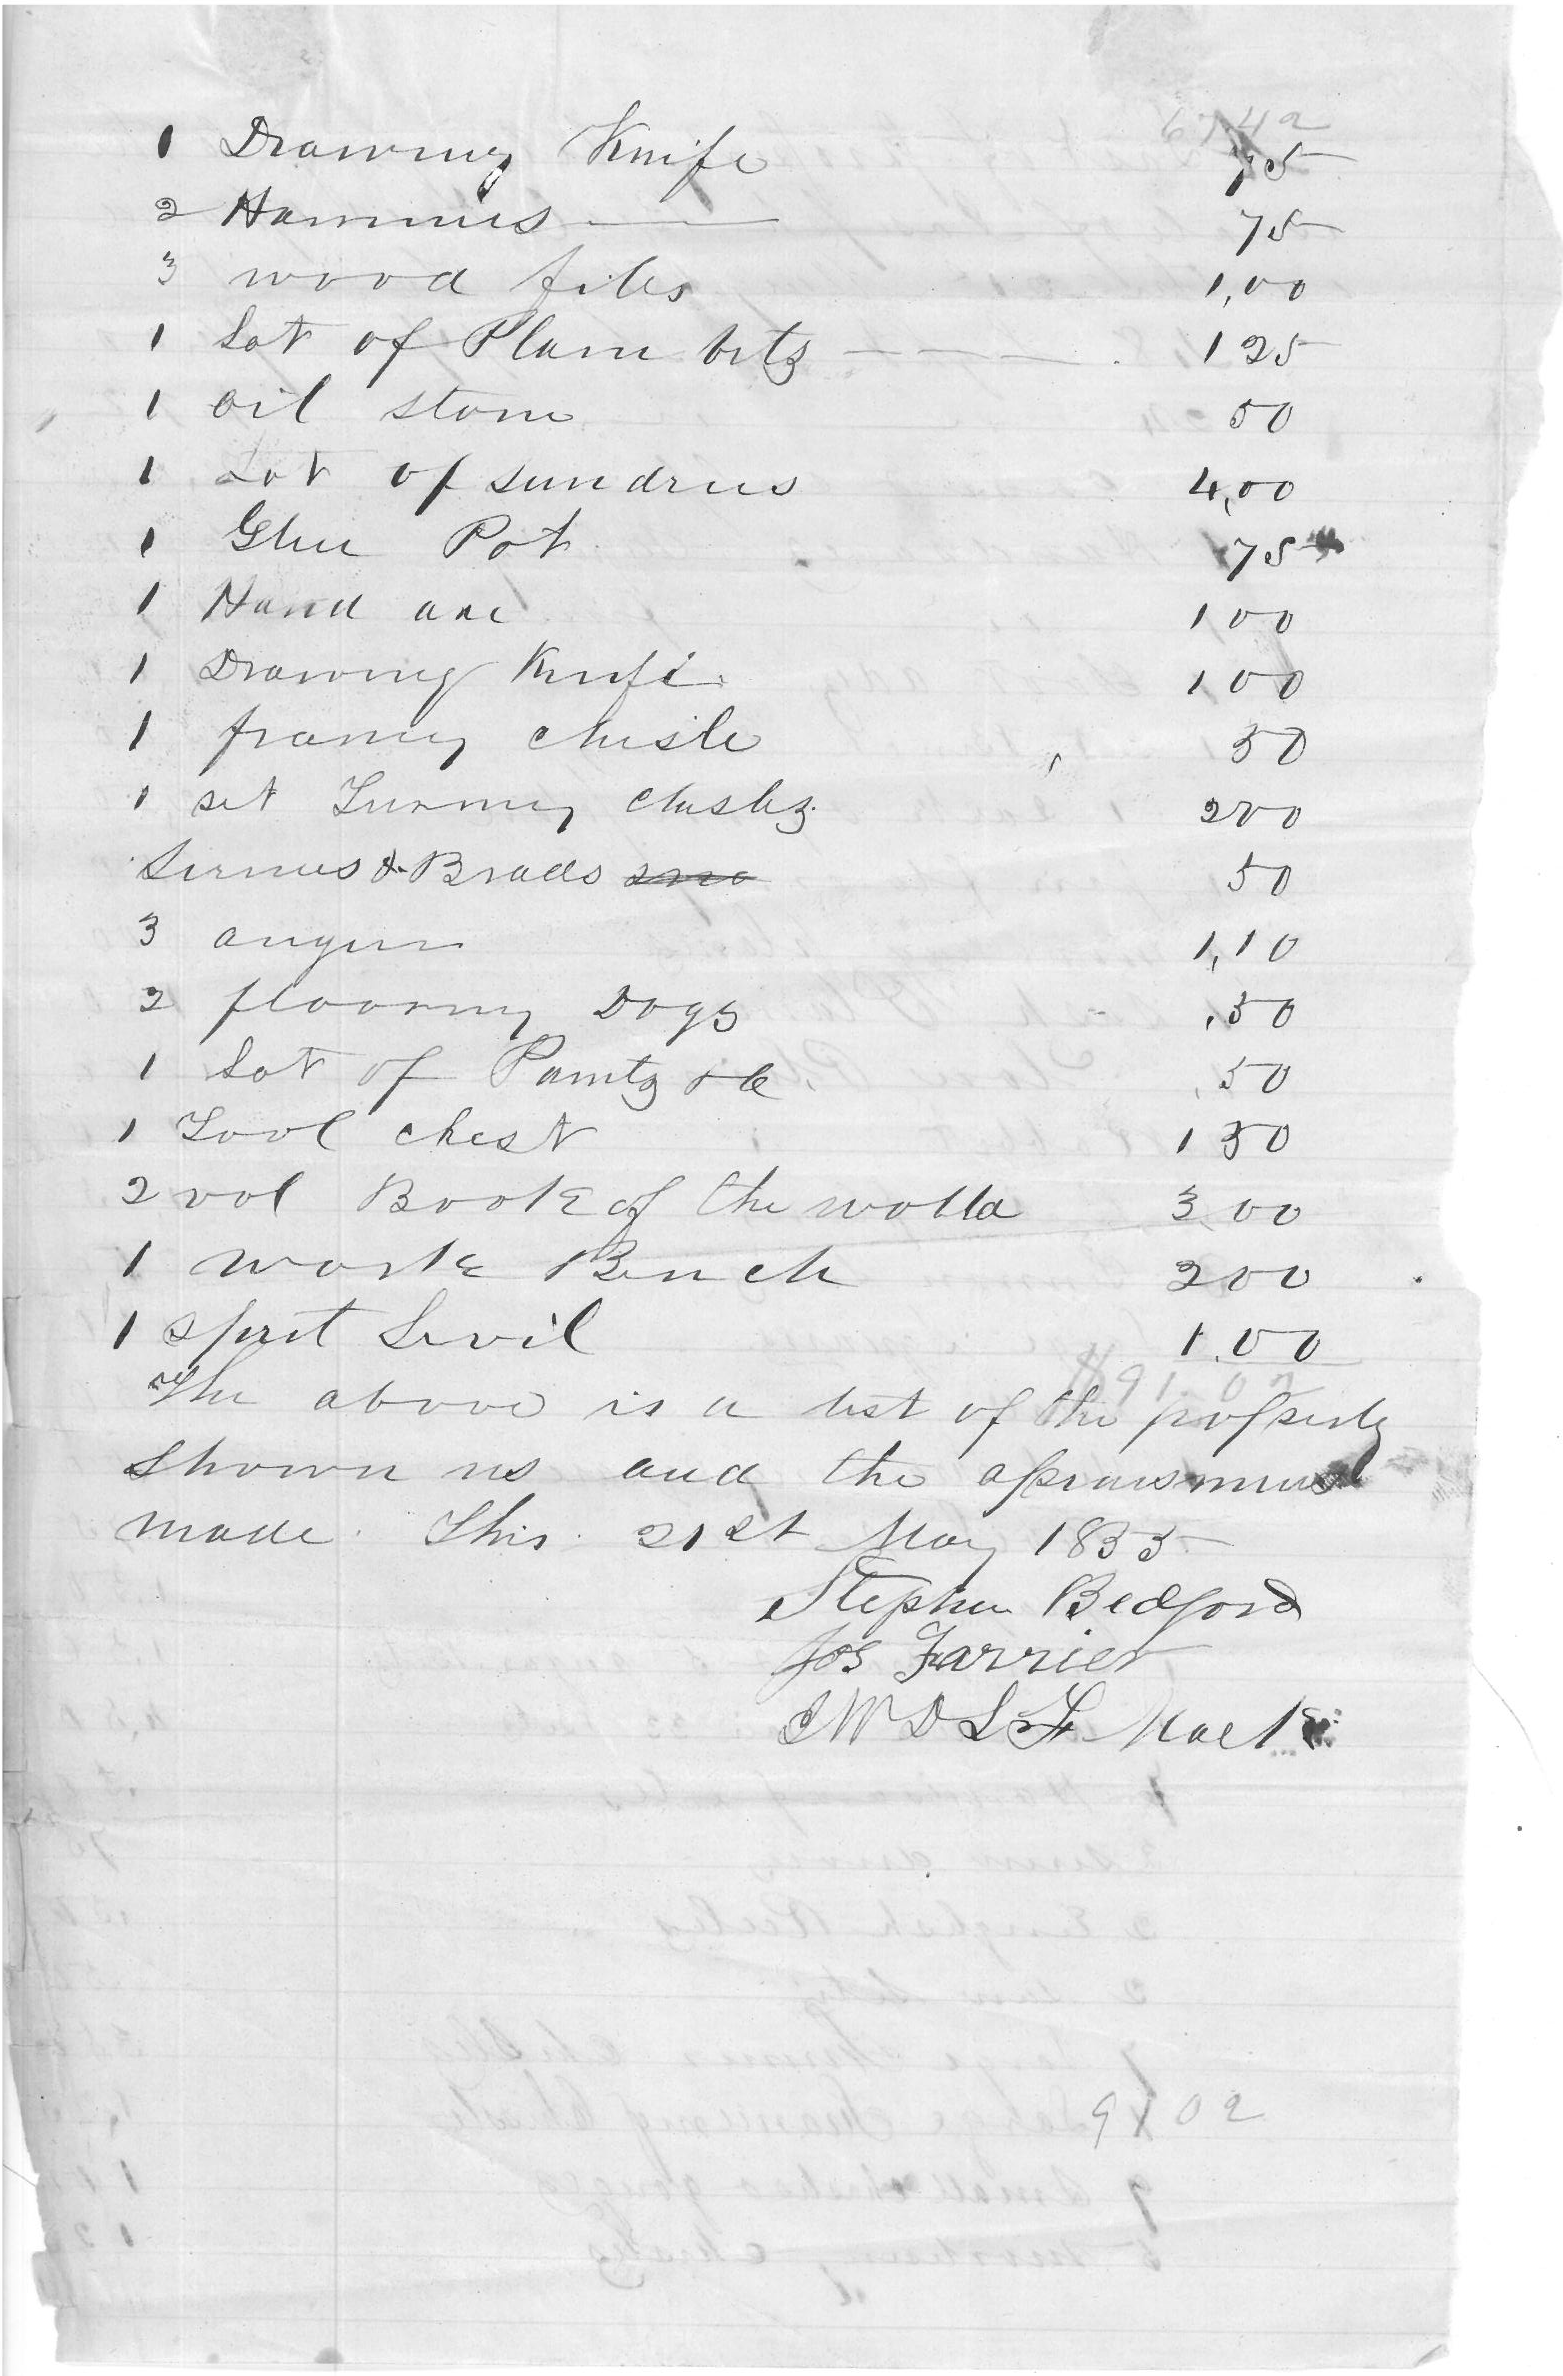 67.42
1 Drawing Knife 75
2 Hammers 75
3 wood files 1,00
1 Lot of Plane bits 1 25
1 oil stone 50
1 Lot of sundries 4,00
1 Glue Pot 75
1 Hand axe 1 00
1 Drawing Knife 1 00
1 framing chisle 50
1 set Turning chisles 2 00
Screws & Brads 50
3 augurs 1,10
2 flooring Dogs ,50
1 Lot of Paints &c ,50
1 Tool chest 1 50
2 vol Book of the world 3 00
1 work Bench 2 00
1 sprit Levil 1.00
$91.02
The above is a list of the property
shown us and the apraisment
made This 21st May 1855
Stephen Bedford
Jos Farrier
Mack
91 02